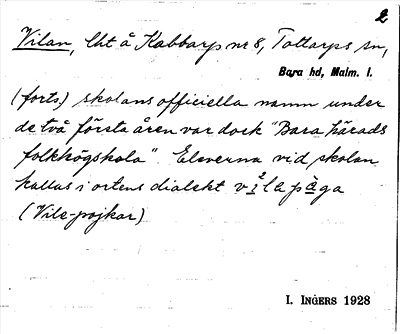 2
Vilan, lht å Kabbarp nr 8, Tottarps sn,
Bara hd, Malm. l.
(forts,) skolans officiella namn under
de två första åren var dock "Bara härads
folkhögskola". Eleverna vid skolan
kallas i ortens dialekt
(Vile-pojkar)
I. INGERS 1928